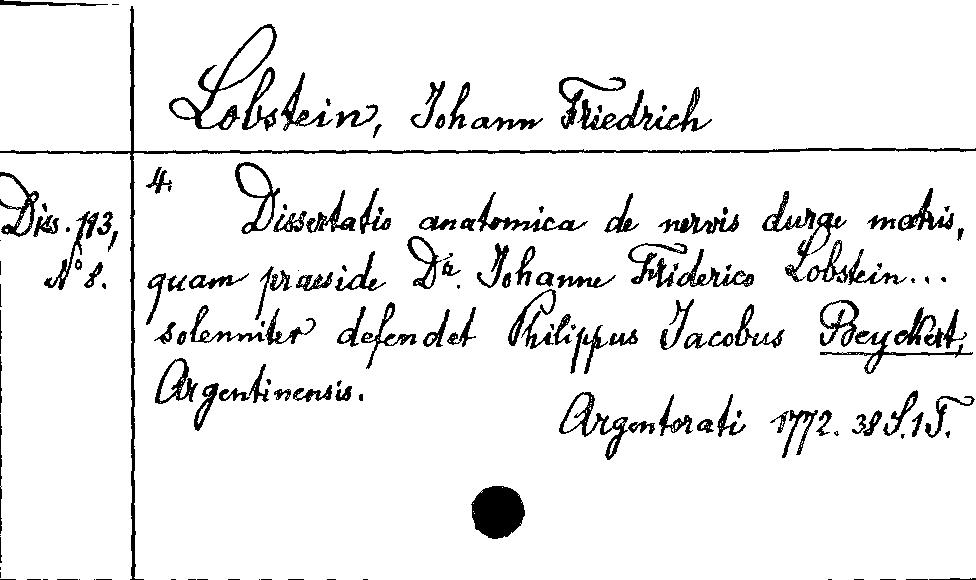 Lobstein, Johann Friedrich
Diss. 193,
N° 8.
4.
Dissertatio anatomica de nervis durae matris,
quam praeside Dr. Johanne Friderico Lobstein...
solenniter defendet Philippus Jacobus Beyckert,
Argentinensis.
Argentorati 1772. 38 S. 1 T.